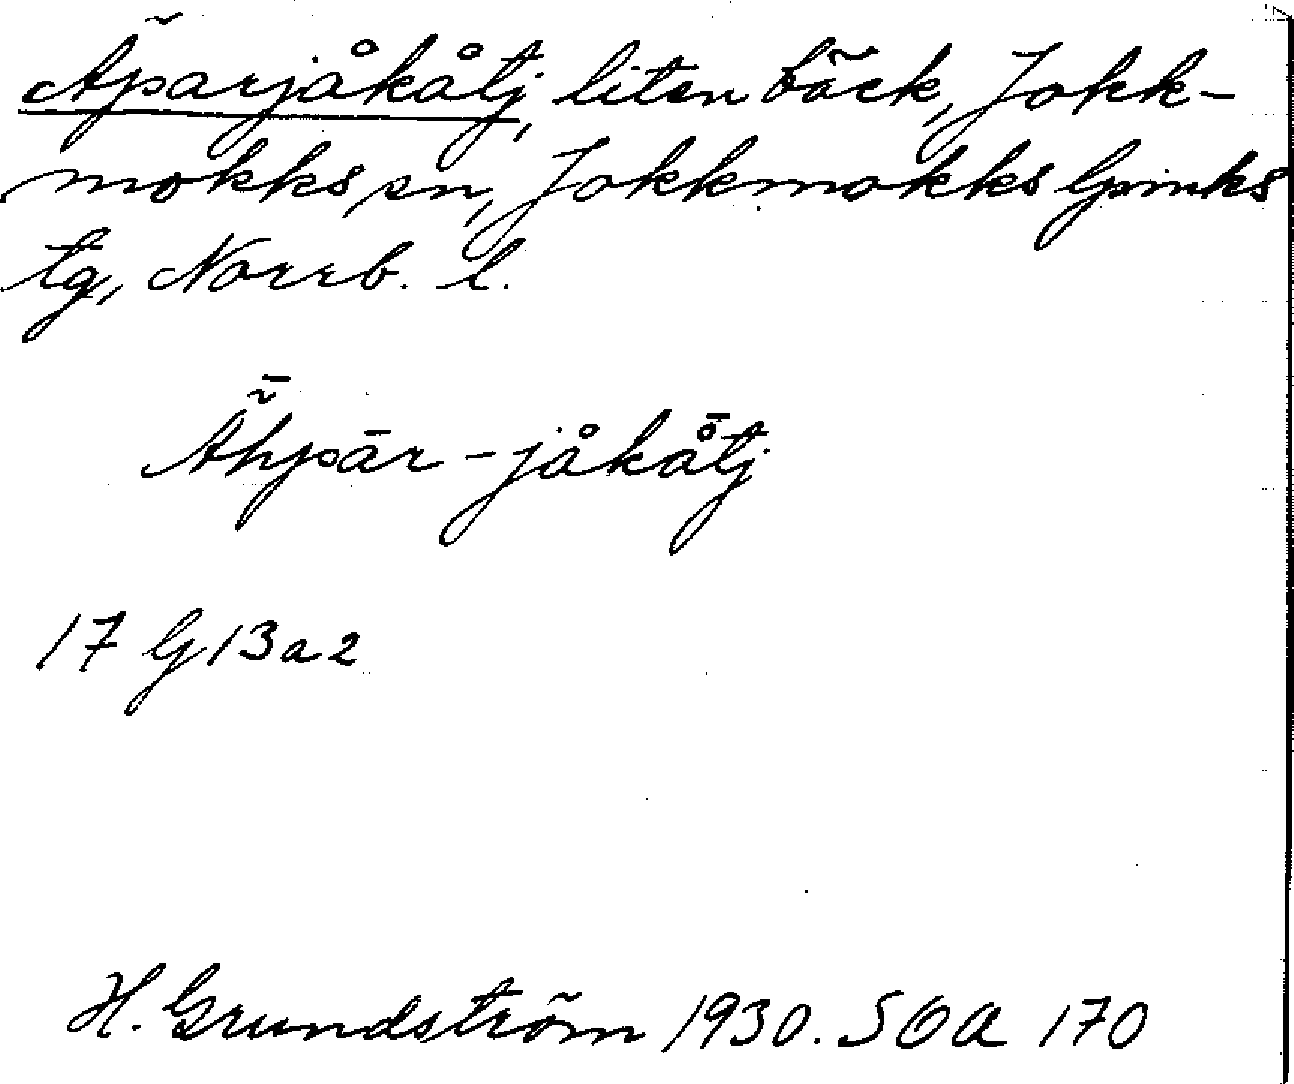 Äparjåkåtj, liten bäck, Jokk-
mokks sn, Jokkmokks lpmks
tg, Norrb. l.
Ǟhpār-jåkå̄tj
17 G 13 a 2
H. Grundström 1930. SOA 170